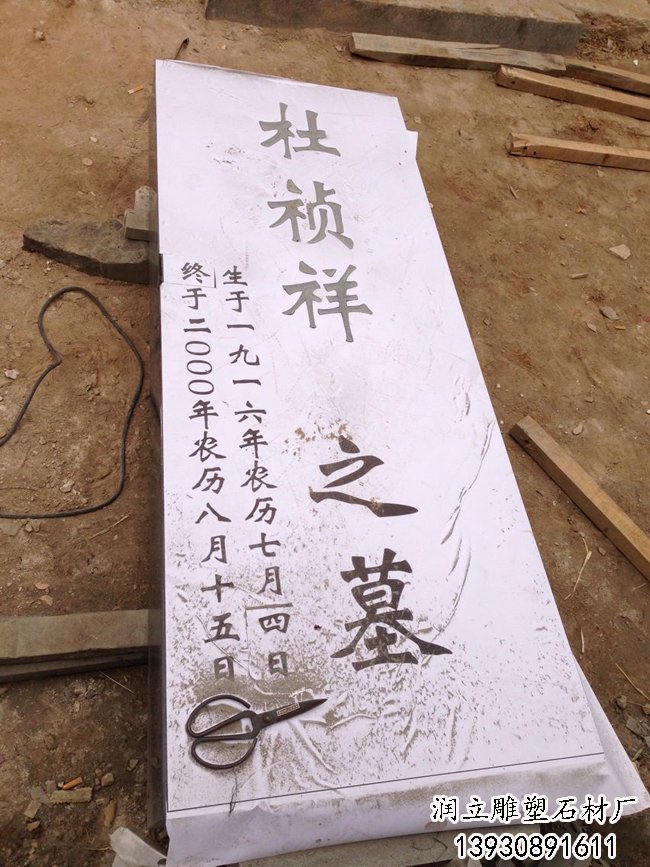 杜祯祥之墓
生于一九一六年农历七月四日
终于二000年农历八月十五日
润立雕塑石材厂
13930891611